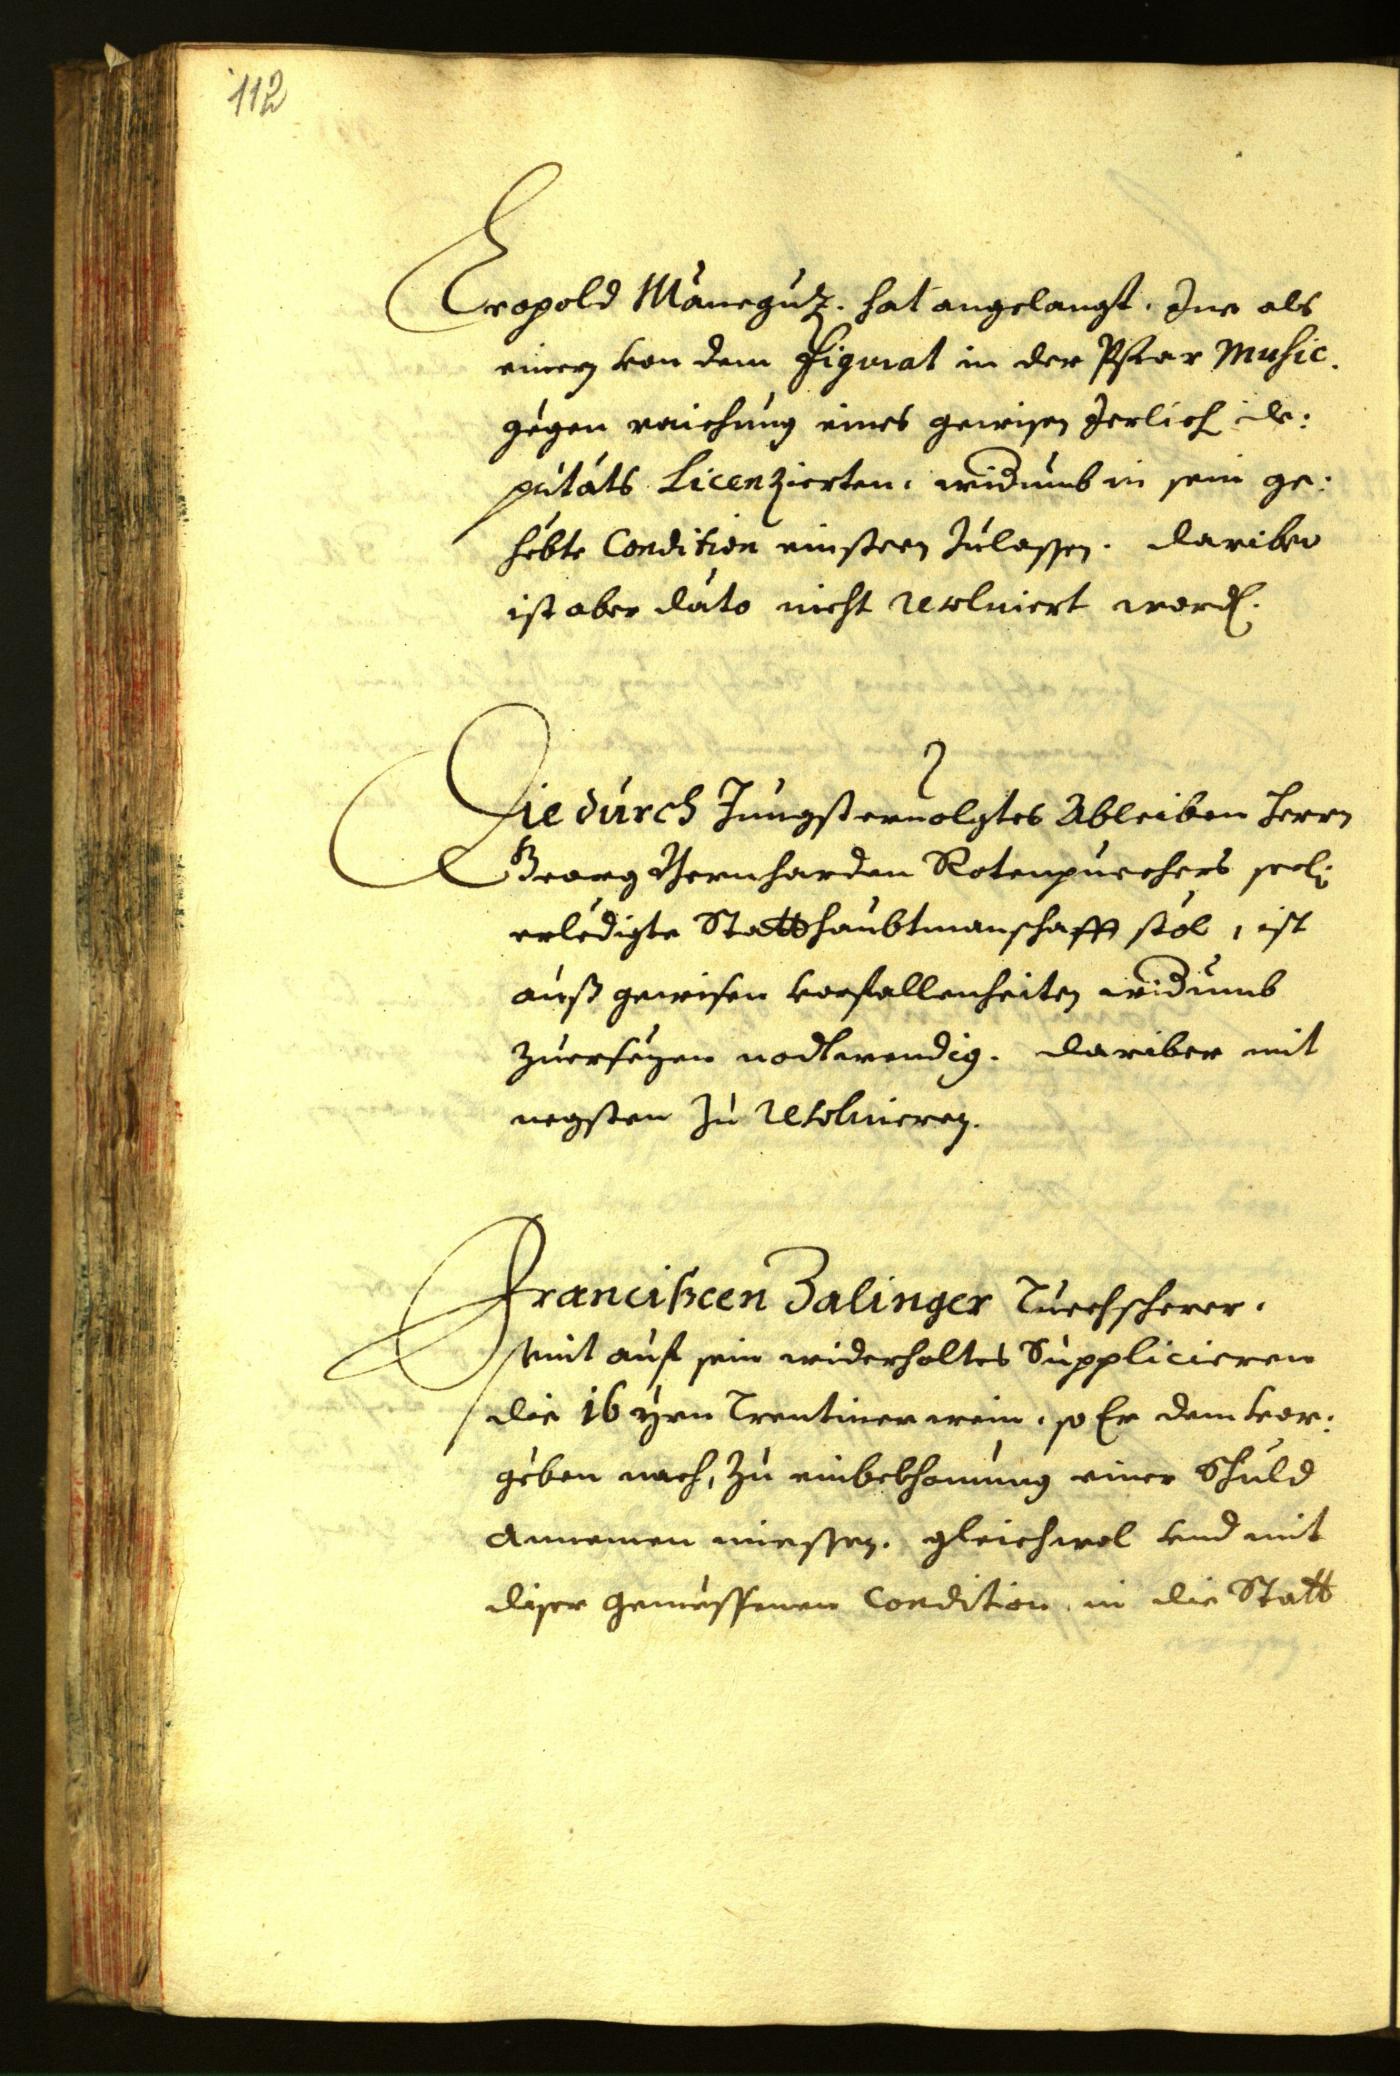 112
Leopold Mänegutz. hat angelangt. Ine als
einen von dem Figurat in der Pfarr Music.
gegen raichung eines gewisen Jerlich de:
putats Licenzierten, widumb in sein ge:
hebte Condition einsteen zulassen. dariber
ist aber dato nicht resoluiert word.
Die durch Jungst ervolgtes Ableiben Herrn
Georg Bernharden Rotenpuechers seel:
erledigte Statthaubtmanschafft stöl, ist
auß gewisen vorfallenheiten widumb
zuersezen nodtwendig. dariber mit
negsten zu resoluieren.
Francißcen Zalinger Tuechscherer.
wirt auf sein widerholtes Supplicieren
die 16 yrn Trentiner wein. so Er dem vor:
geben nach, zu einbekhomung einer Schuld
annemen miessen. gleichwol vnd mit
diser gemessenen Condition in die Statt